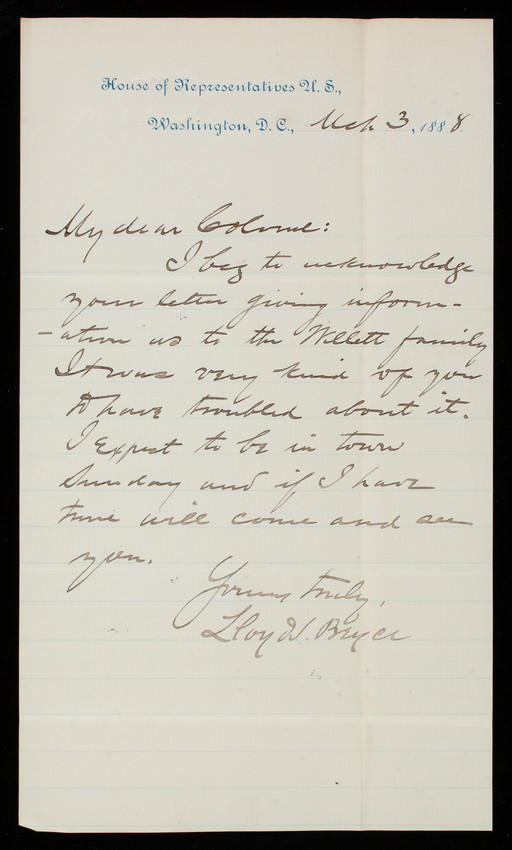 House of Representatives U. S.,
Washington, D. C., Mch 3, 1888
My dear Colonel:
I beg to acknowledge
your letter giving inform-
-ation as to the Willett family
It was very kind of you
to have troubled about it.
I expect to be in town
Sunday and if I have
time will come and see
you.
Yours truly,
Lloyd S. Bryce